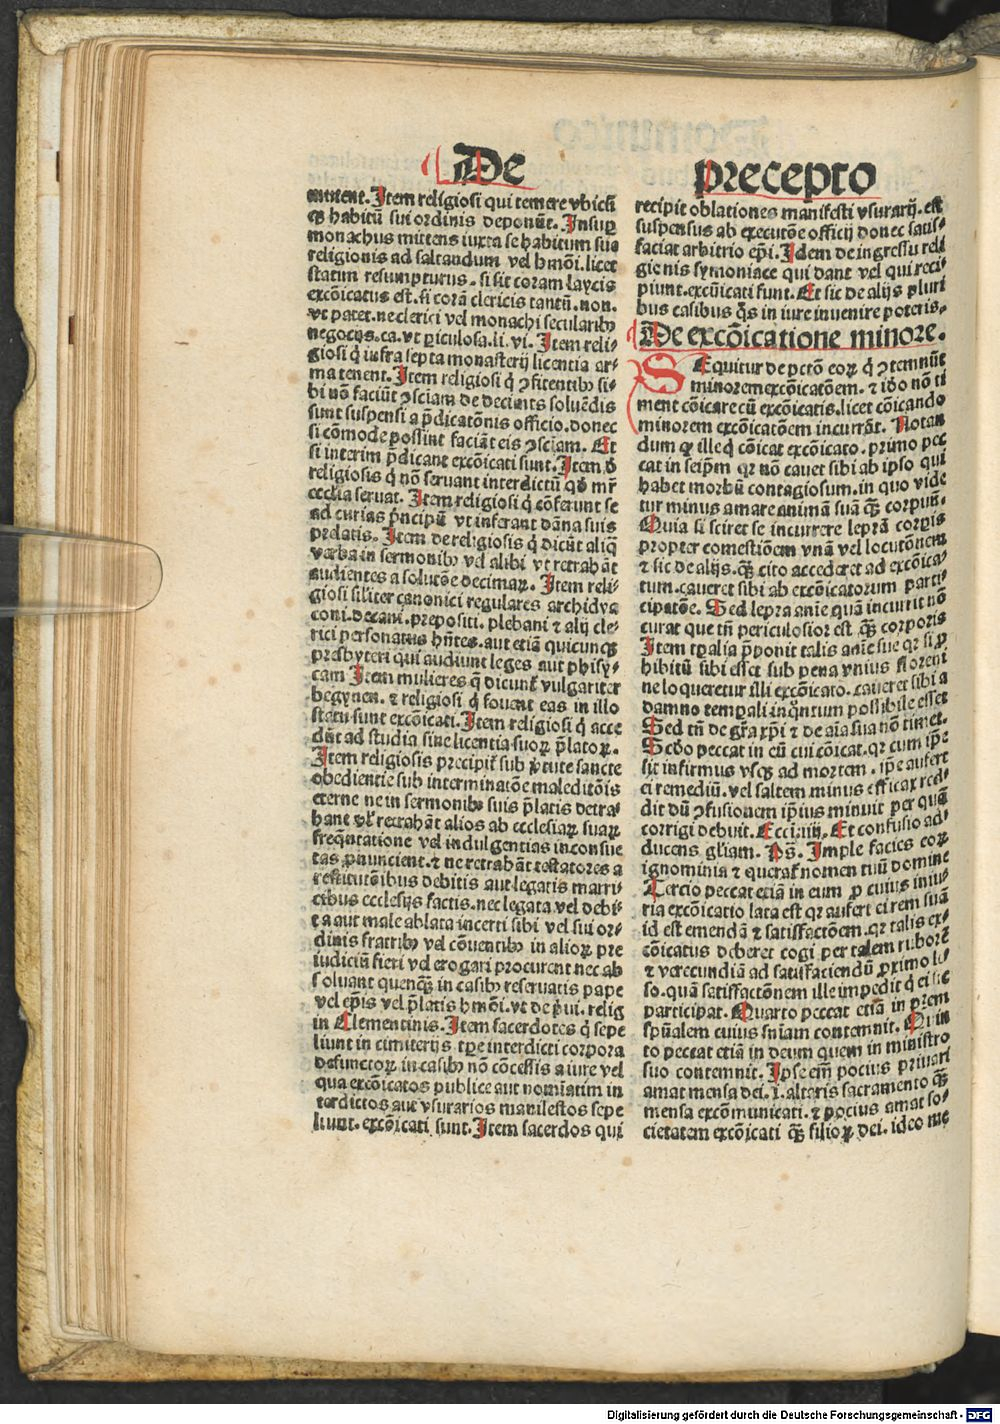 De
precepto
mittent. Item religiosi qui temere vbicū
qꝫ habitū sui ordinis deponūt. Insuꝑ
monachus mittens iuxta se habitum suū
religionis ad saltandum vel hmōi. licet
statim resumpturus. si sit coram laycis
excōicatus est. si corā clericis tantū. non.
vt patet. ne clerici vel monachi secularibꝫ
negocijs. ca. vt ꝑiculosa. li. vi. Item reli-
giosi q̄ infra septa monasterij licentia ar-
ma tenent. Item religiosi q̄ ꝯfitentibꝫ si-
bi nō faciūt ꝯsciam de decimis soluēdis
sunt suspensi a p̄dicatōnis officio. donec
si cōmode possint faciāt eis ꝯsciam. Et
si interim p̄dicant excōicati sunt. Item ō
religiosis q̄ nō seruant interdictū qō mr̄
ecclia seruat. Item religiosi q̄ cōferunt se
ad curias p̄ncipū vt inferant dāna suis
prelatis. Item de religiosis q̄ dicūt aliq̄
verba in sermonibꝫ vel alibi vt retrahāt
audientes a solutōe decimaꝝ. Item reli-
giosi siliter canonici regulares archidya
coni. decani. prepositi. plebani ⁊ alij cle-
rici personatus hn̄tes. aut etiā quicunqꝫ
presbyteri qui audiunt leges aut phisy-
cam Item mulieres q̄ dicunt̄ vulgariter
begynen. ⁊ religiosi q̄ fouent eas in illo
statu sunt excōicati. Item religiosi q̄ acce
dūt ad studia sine licentia suoꝝ p̄latoꝝ.
Item religiosis precipit̄ sub ꝟtute sancte
obedientie sub interminatōe maleditōis
eterne ne in sermonibꝫ suis p̄latis detra-
hant vl̄ retrahāt alios ab ecclesiaꝝ suaꝝ
freq̄ntatione vel indulgentias inconsue
tas ꝓnuncient. ⁊ ne retrahāt testatores a
restitutōibus debitis aut legatis matri
cibus ecclesijs factis. nec legata vel debi-
ta aut male ablata incerti sibi vel sui or-
dinis fratribꝫ vel cōuentibꝫ in alioꝝ pre
iudiciū fieri vel erogari procurent nec ab
soluant quenqꝫ in casibꝫ reseruatis pape
vel ep̄is vel p̄latis hmōi. vt de p̄ui. relig
in Clementinis. Item sacerdotes q̄ sepe
liunt in cimiterijs tpe interdicti corpora
defunctoꝝ in casibꝫ nō cōcessis a iure vel
qua excōicatos publice aut nomīatim in
terdictos aut vsurarios manifestos sepe
liunt. excōicati sunt. Item sacerdos qui
recipit oblationes manifesti vsurarij. est
suspensus ab executōe officij donec satis-
faciat arbitrio ep̄i. Idem de ingressu reli
gionis symoniace qui dant vel qui reci-
piunt. excōicati sunt. Et sic de alijs pluri
bus casibus q̄s in iure inuenire poteris.
De excōicatione minore.
SEquitur de pctō eoꝝ q̄ ꝯtemnūt
minorem excōicatōem. ⁊ iō nō ti
ment cōicare cū excōicatis. licet cōicando
minorem excōicatōem incurrāt. Notan
dum ꝙ ille q̄ cōicat excōicato. primo pec
cat in seip̄m qr nō cauet sibi ab ipso qui
habet morbū contagiosum. in quo vide
tur minus amare animā suā qꝫ corpus.
Quia si sciret se incurrereleprā corpis
propter comestiōem vnā vel locutōnem
⁊ sic de alijs. qꝫ cito accederet ad excōica-
tum. caueret sibi ab excōicatorum parti-
cipatōe. Sed lepra anie quā incurrit nō
curat que tn̄ periculosior est qꝫ corporis
Item tꝑalia p̄ponit talis anie sue qr si ꝓ
hibitū sibi esset sub pena vnius floreni
ne loqueretur illi excōicato. caueret sibi a
damno temꝑali inq̄ntum possibile esset
Sed tn̄ de grā xp̄i ⁊ de aīa sua nō timet.
Scd̄o peccat in eū cui cōicat. qr cum ip̄e
sit infirmus vsqꝫ ad mortem. ip̄e aufert
ei remediū. vel saltem minus efficax red-
dit dū ꝯfusionem ip̄ius minuit per quā
corrigi debuit. Ecci. iiij. Et confusio ad-
ducens gliam. Ps̄. Imple facies eoꝝ
ignominia ⁊ querat̄ nomen tuū domine
Tercio peccat etiā in eum ꝓ cuius iniu-
ria excōicatio lata est qr aufert ei rem suā
id est emendā ⁊ satisfactōem. qr talis ex-
cōicatus deberet cogi per talem ruborē
⁊ verecundiā ad satisfaciendū ꝓximo le-
so. quā satisfactōnem ille impedit q̄ ei sic
participat. Quarto peccat etiā in p̄rem
spūalem cuius sn̄iam contemnit. Quin
to peccat etiā in deum quem in ministro
suo contemnit. Ipse em̄ pocius priuari
amat mensa dei. i. altaris sacramento qꝫ
mensa excōmunicati. ⁊ pocius amat so-
cietatem excōicati qꝫ filioꝝ dei. ideo me
Digitalisierung gefördert durch die Deutsche Forschungsgemeinschaft - DFG